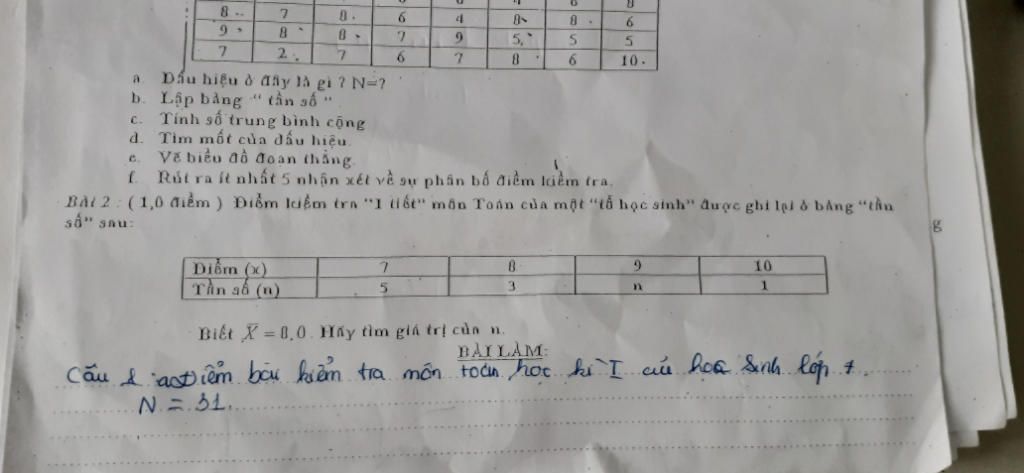 8 7 8 6 4 8 8 6
9 8 8 7 9 5 5 5
7 2 7 6 7 8 6 10
a. Dấu hiệu ở đây là gì ? N=?
b. Lập bảng “ tần số ”
c. Tính số trung bình cộng
d. Tìm mốt của dấu hiệu.
e. Vẽ biểu đồ đoạn thẳng.
f. Rút ra ít nhất 5 nhận xét về sự phân bố điểm kiểm tra.
Bài 2 : ( 1,0 điểm ) Điểm kiểm tra “1 tiết” môn Toán của một “tổ học sinh” được ghi lại ở bảng “tần
số” sau:
g
Điểm (x) 7 8 9 10
Tần số (n) 5 3 n 1
Biết X̄ = 8,0. Hãy tìm giá trị của n.
BÀI LÀM:
Câu 1 : a) Điểm bài kiểm tra môn toán học kì I của học sinh lớp 7.
N = 31.